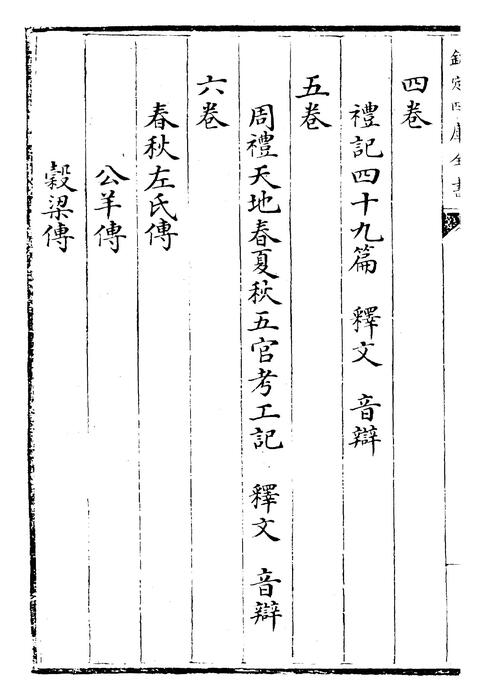 欽定四庫全書
四卷
禮記四十九篇　釋文　音辯
五卷
周禮天地春夏秋五官考工記　釋文　音辯
六卷
春秋左氏傳
公羊傳
穀梁傳